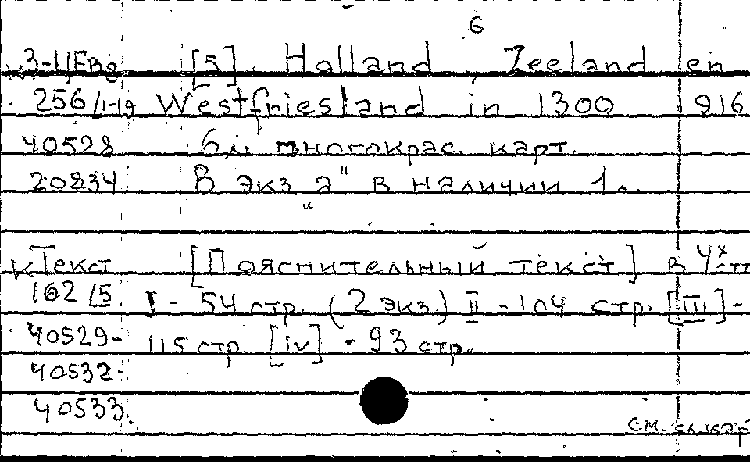 6
3-1/Евg [5]. Holland, Zeeland en
256/1-19 Westfriesland in 1300 916
40528 6 л. многокрас. карт.
20834 В экз „а" в наличии 1 л.
к Текст [Пояснительный текст] в 4х тт
102/5. I - 54 стр. (2 экз.) II - 104 стр. [III] -
40529- 115 стр. [iv] - 93 стр.
40532-
40533.
см. сл. кар